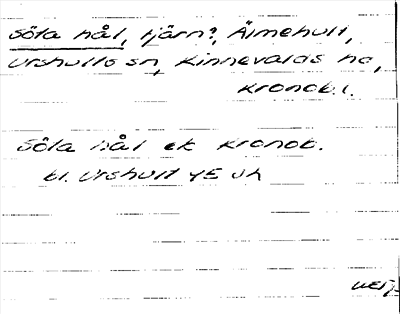 Söta hål, tjärn?, Älmehult,
Urshults sn, Kinnevalds hd,
Kronob.l.
Söta hål ek Kronob.
bl. Urshult 4E